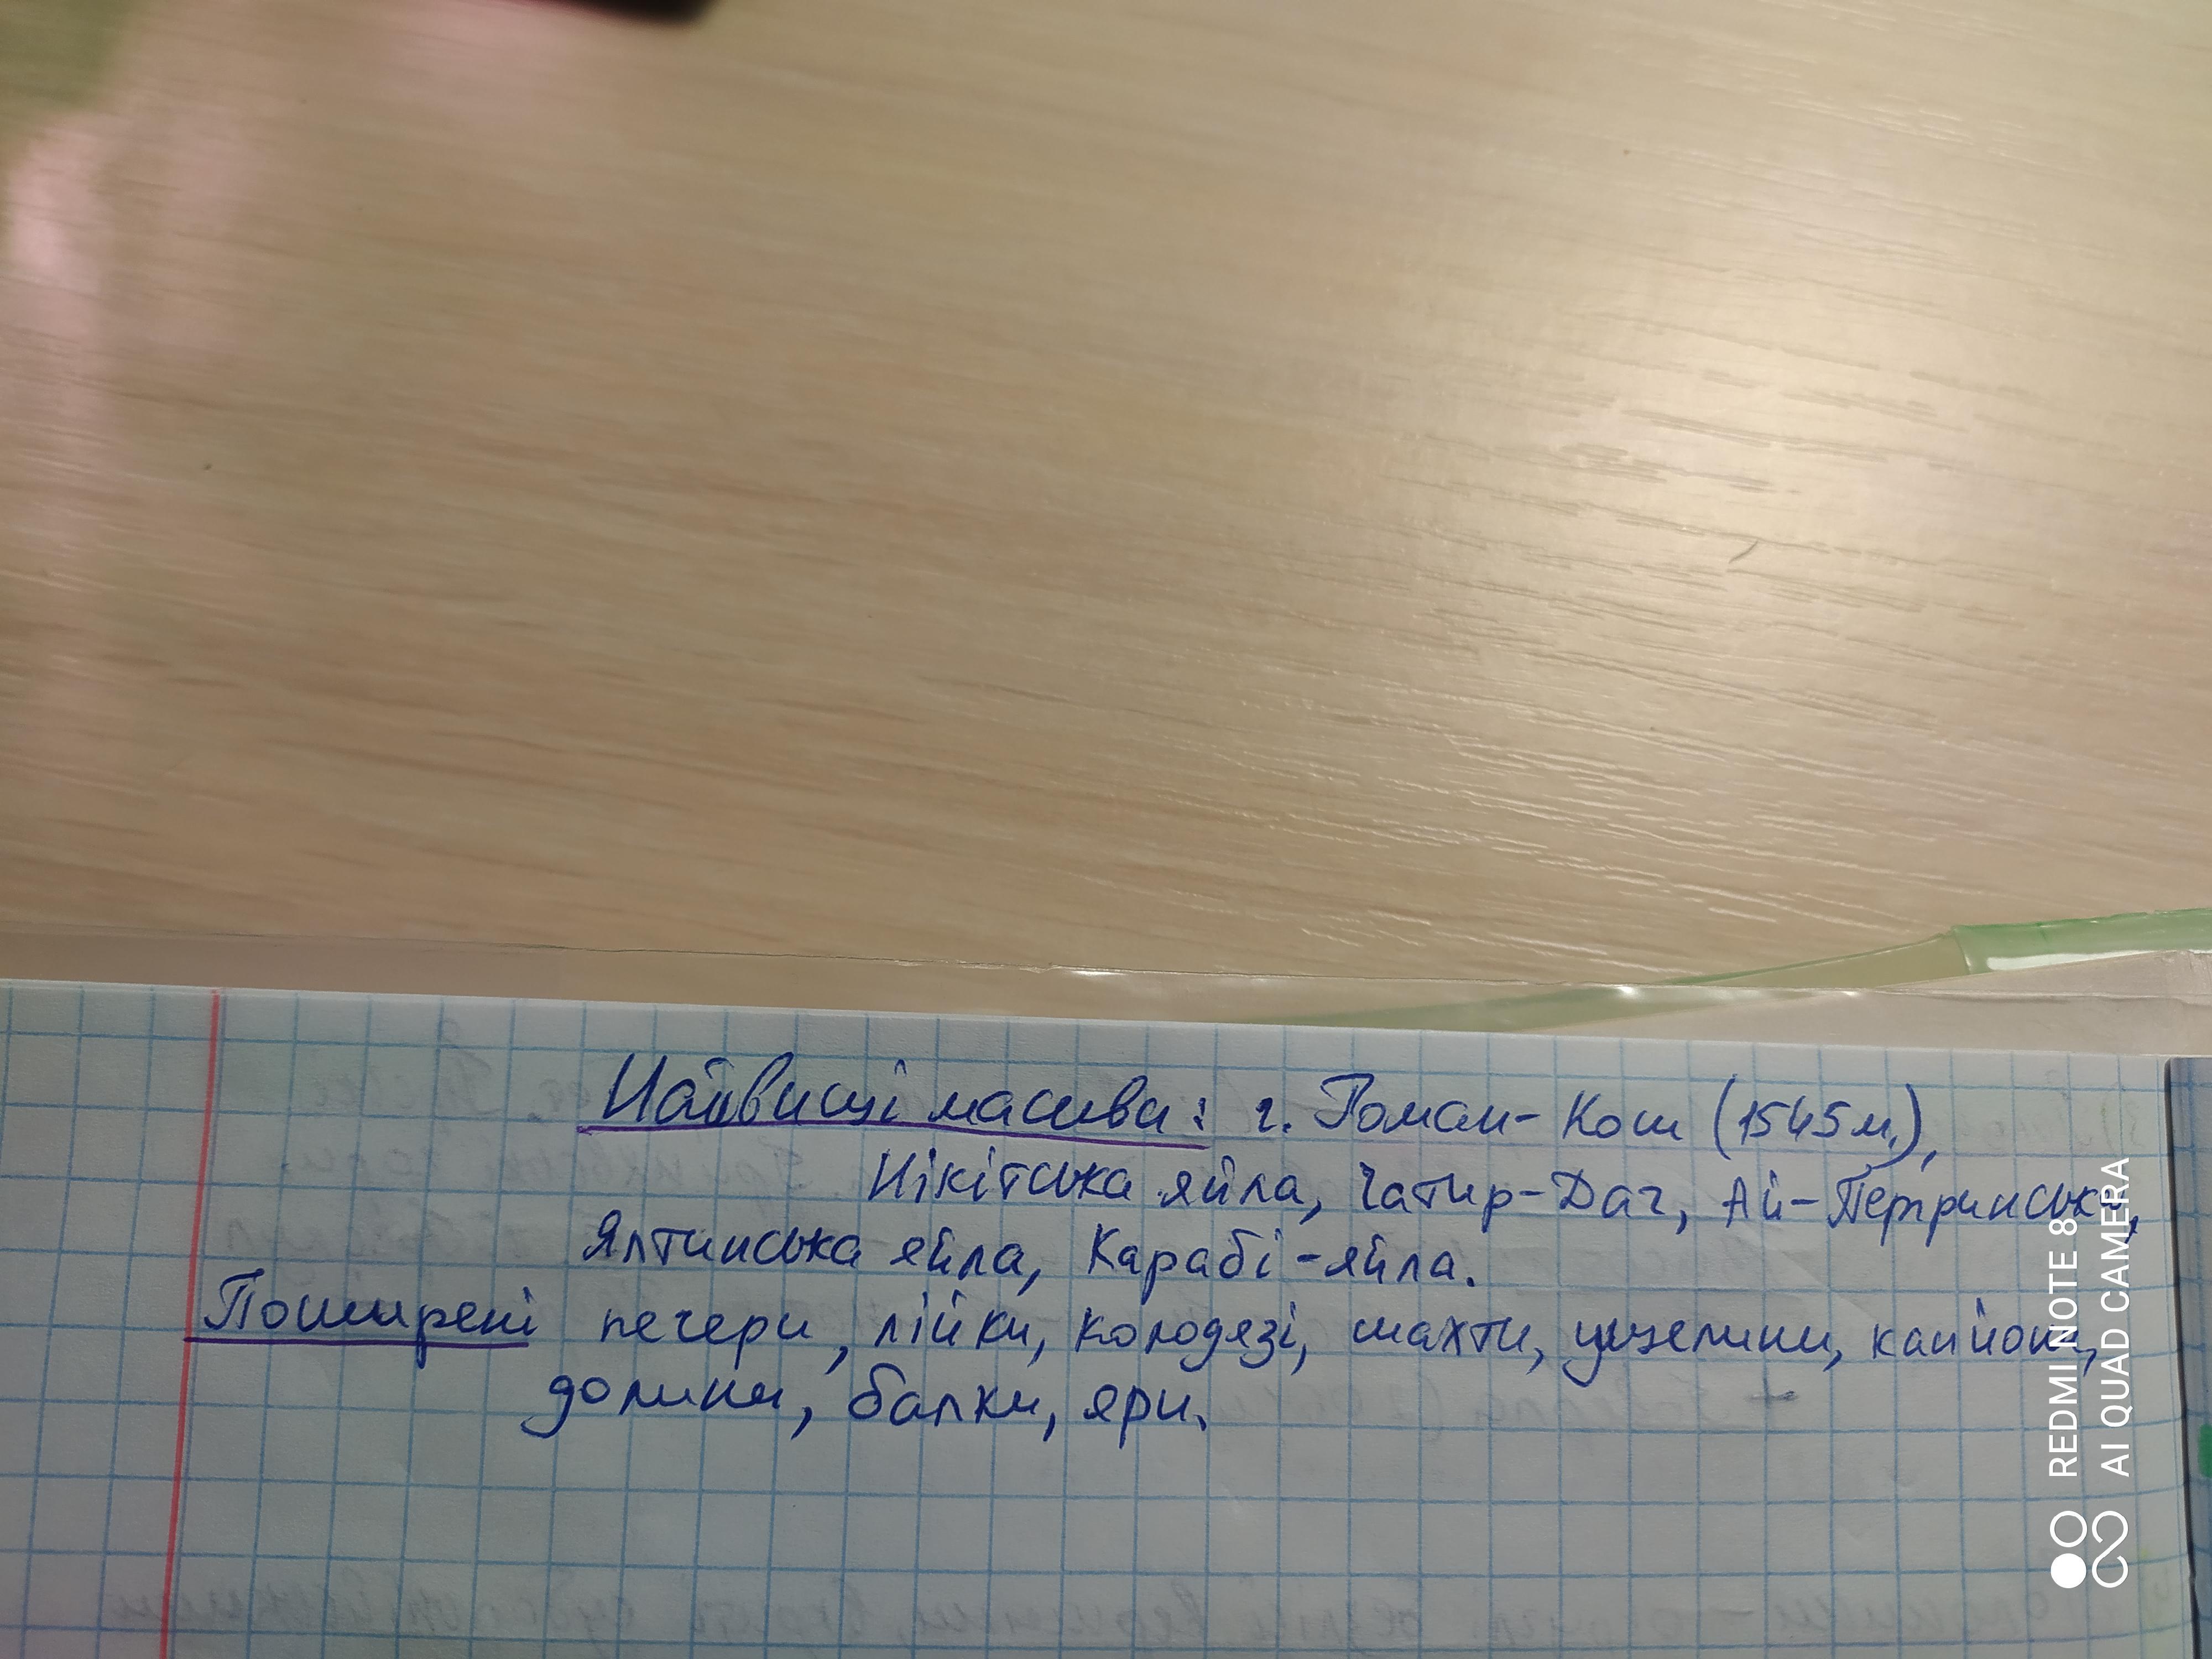 Найвищі масиви: г. Роман-Кош (1545м.),
Нікітська яйла, Чатир-Даг, Ай-Петринська,
Ялтинська яйла, Карабі-яйла.
Поширені печери, лійки, колодязі, шахти, ущелини, каньйони,
долини, балки, яри.
REDMI NOTE 8
AI QUAD CAMERA